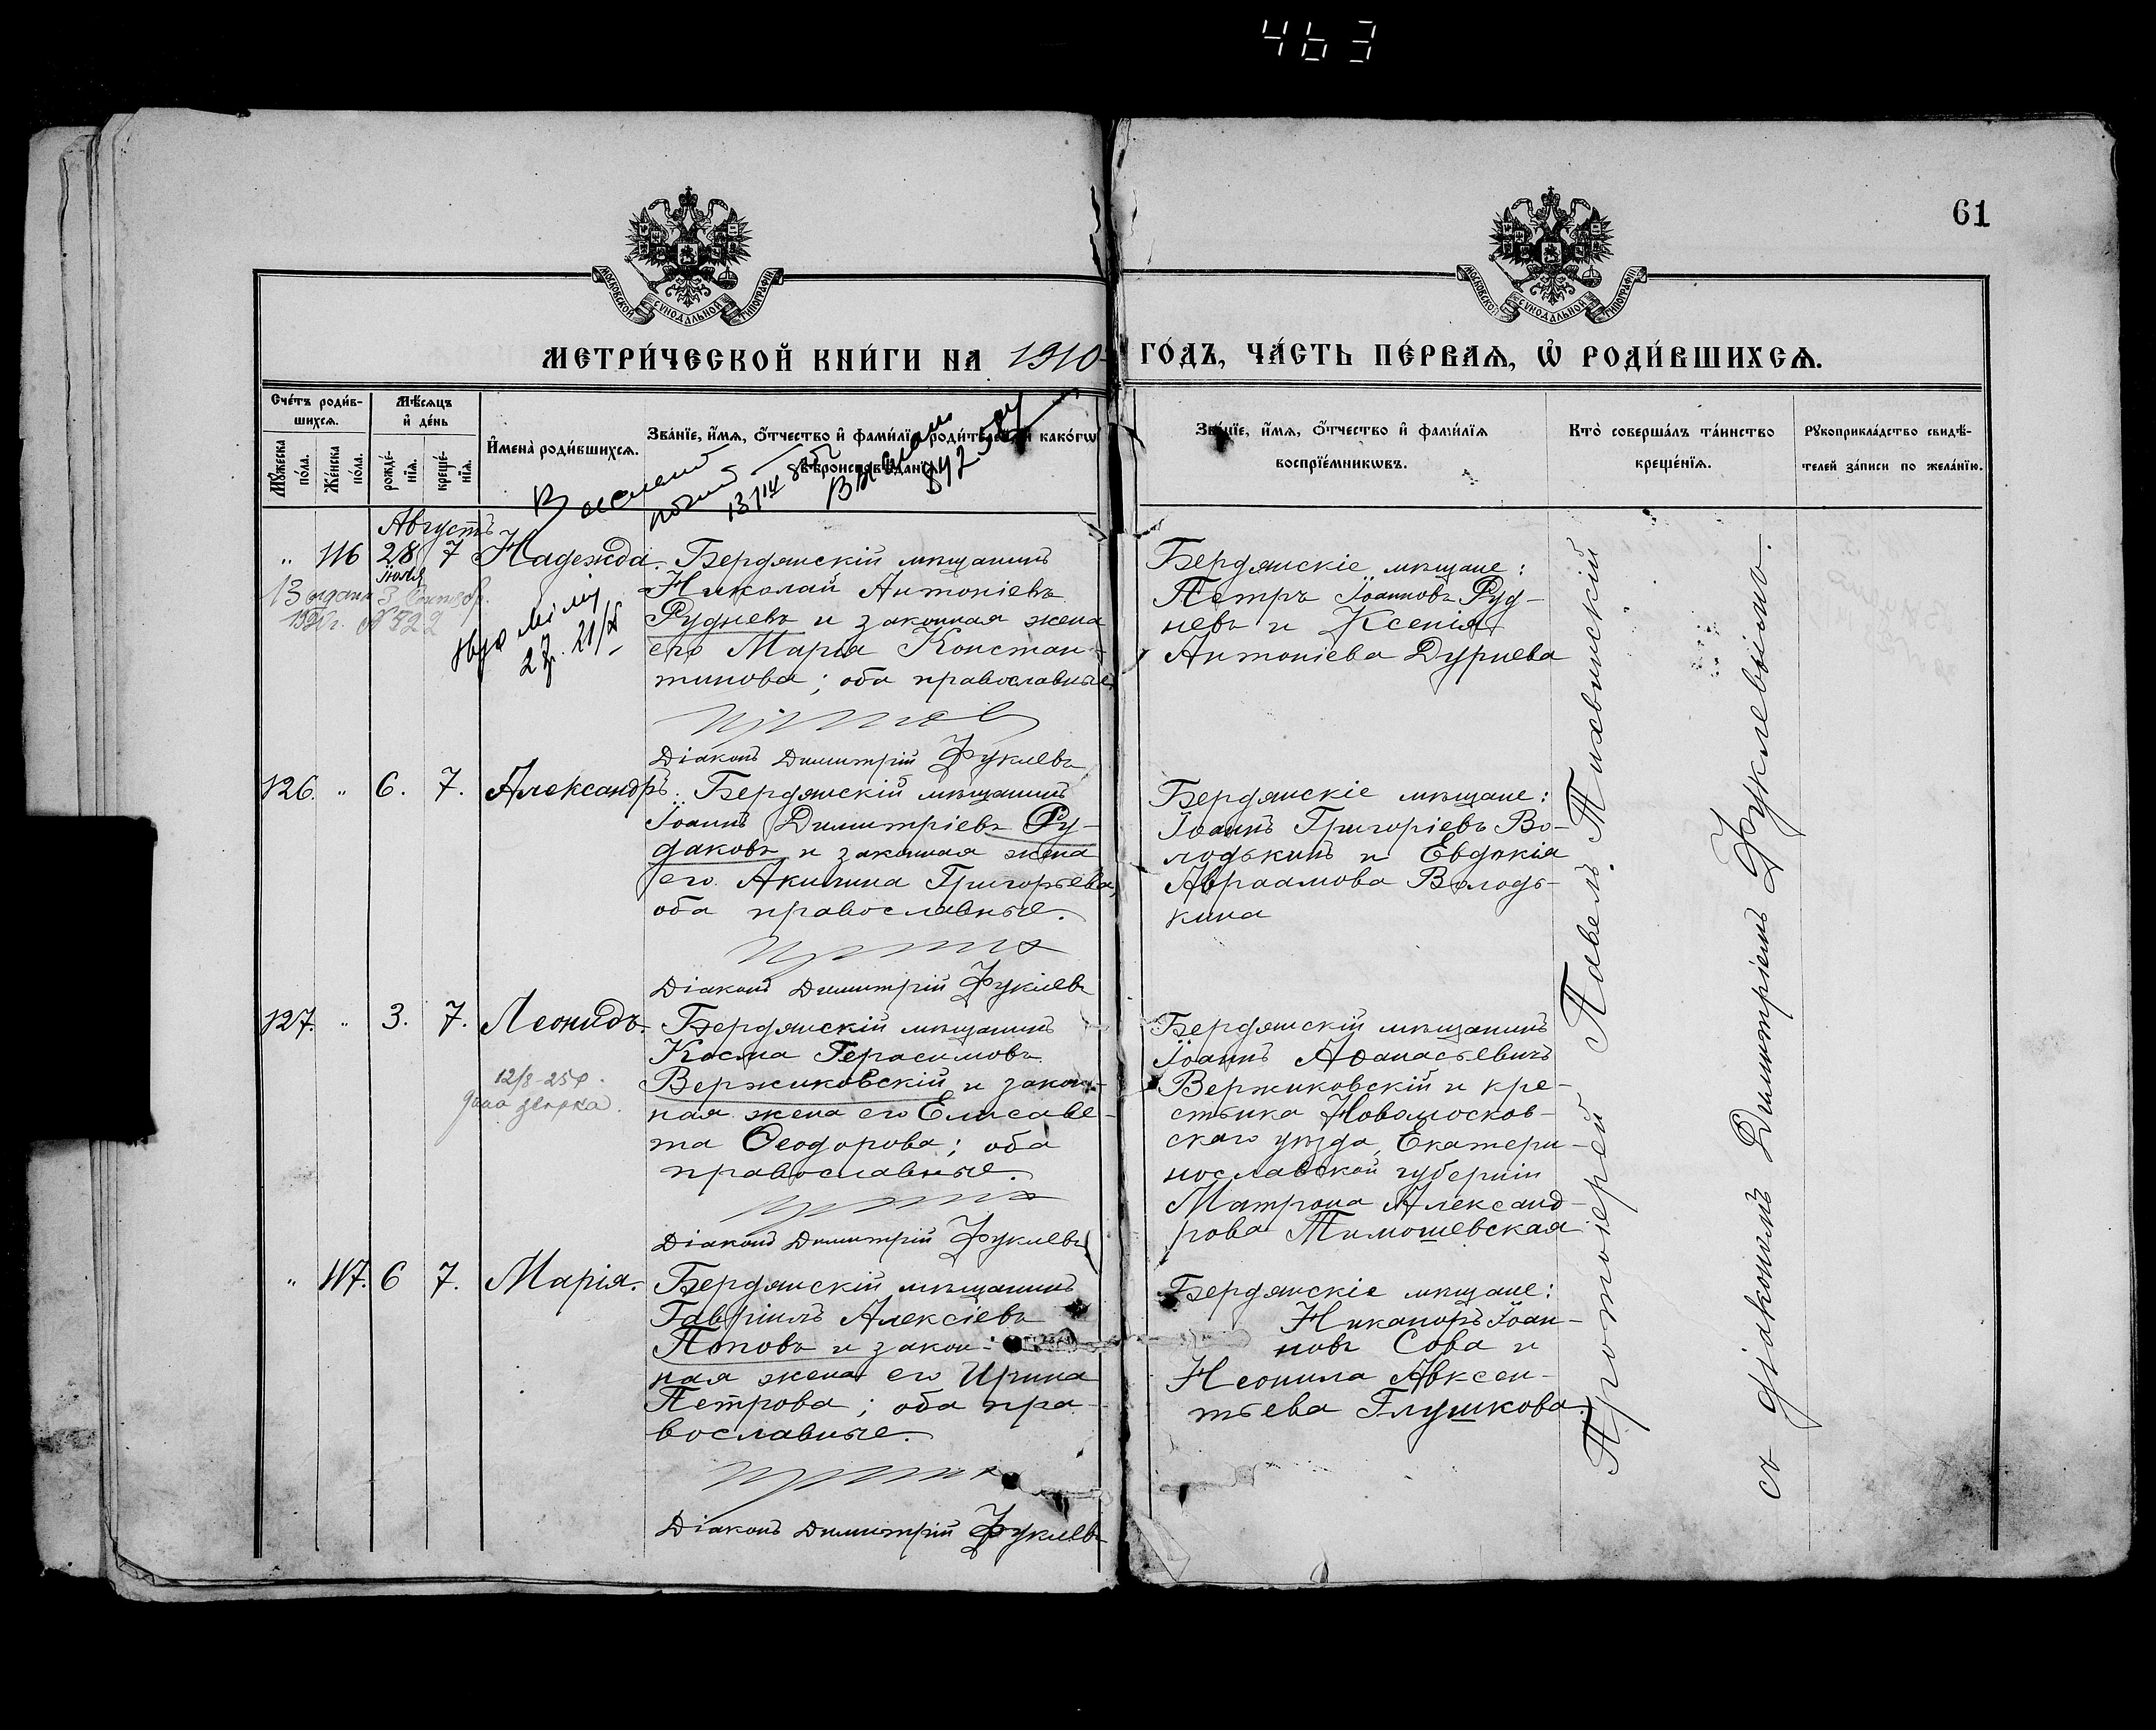 463
61
МОСКОВСКОЙ СѴНОДАЛЬНОЙ ТИПОГРАФІИ
МОСКОВСКОЙ СѴНОДАЛЬНОЙ ТИПОГРАФІИ
МЕТРИ́ЧЕСКОЙ КНИ́ГИ НА 1910 ГО́ДЪ, ЧА́СТЬ ПЕ́РВАѦ, Ѡ҆ РОДИ́ВШИХСѦ.
Сче́тъ роди́в-
шихсѧ.
Мꙋ́жеска по́ла.
Же́нска по́ла.
Мѣ́сѧцъ
и҆ де́нь
рожде́-
нїѧ.
креще́-
нїѧ.
И҆мена̀ роди́вшихсѧ.
Зва́нїе, и҆́мѧ, ѻ҆́тчество и҆ фами́лїѧ роди́телей, и҆ како́гѡ
вѣроисповѣ́данїѧ.
Зва́нїе, и҆́мѧ, ѻ҆́тчество и҆ фами́лїѧ
воспрїе́мникѡвъ.
Кто̀ соверша́лъ та́инство
креще́нїѧ.
Рꙋкоприкла́дство свидѣ́-
телей за́писи по жела́нїю.
Августъ
" 116 28 7 Надежда. Бердянскій мѣщанинъ
Іюля
Николай Антоніевъ
Рудневъ и законная жена
его Марія Констан-
тинова; оба православные.
Діаконъ Димитрій Фукиевъ
Бердянскіе мѣщане:
Петръ Іоанновъ Руд-
невъ и Ксенія
Антоніева Дурнева
126. " 6. 7. Александръ. Бердянскій мѣщанинъ
Іоаннъ Димитріевъ Ру-
даковъ и законная жена
его Акилина Григорьева,
оба православные.
Діаконъ Димитрій Фукиевъ
Бердянскіе мѣщане:
Іоаннъ Григоріевъ Во-
лодькинъ и Евдокія
Авраамова Володь-
кина
127. " 3. 7. Леонидъ. Бердянскій мѣщанинъ
Косма Герасимовъ
Вержиковскій и закон-
ная жена его Елисаве-
та Ѳеодорова; оба
православные.
12/8-25 р.
Діаконъ Димитрій Фукиевъ
Бердянскій мѣщанинъ
Іоаннъ Аѳанасьевичъ
Вержиковскій и кре-
стьянка Новомосков-
скаго уѣзда, Екатери-
нославской губерніи
Матрона Александ-
рова Тимошевская
" 117. 6 7. Марія. Бердянскій мѣщанинъ
Гавріилъ Алексіевъ
Поповъ и закон-
ная жена его Ирина
Петрова; оба пра-
вославные.
Діаконъ Димитрій Фукиевъ
Бердянскіе мѣщане:
Никаноръ Іоан-
новъ Сова и
Неонила Авксен-
тьева Глушкова.
Протоіерей Павелъ
съ діакономъ Димитріемъ Фукиевымъ.